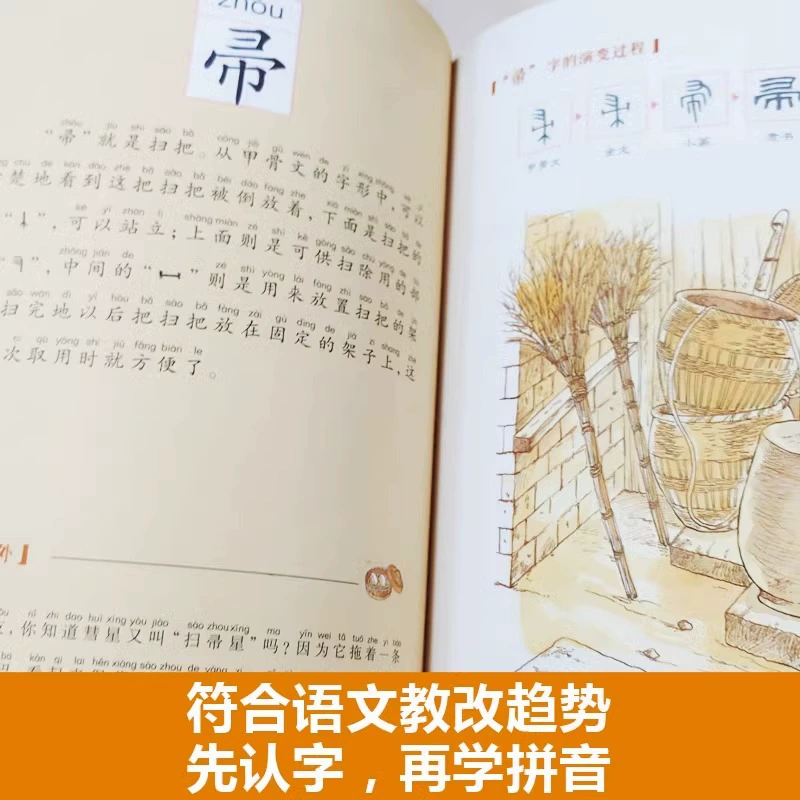 zhou
帚
zhǒu jiù shì sào bǎ cóng jiǎ gǔ wén de zì xíng zhōng
“帚”就是扫把。从甲骨文的字形中，可以
chǔ de kàn dào zhè bǎ sào bǎ bèi dào fàng zhe xià miàn shì sào bǎ de
楚地看到这把扫把被倒放着，下面是扫把的
kě yǐ zhàn lì shàng miàn zé shì kě gōng sǎo chú yòng de bù
“”，可以站立；上面则是可供扫除用的部
zhōng jiān de zé shì yòng lái fàng zhì sào bǎ de jià
“”，中间的“”则是用来放置扫把的架
sǎo wán dì yǐ hòu bǎ sào bǎ fàng zài gù dìng de jià zi shàng zhè
扫完地以后把扫把放在固定的架子上，这
cì qǔ yòng shí jiù fāng biàn le
次取用时就方便了。
外】
nǐ zhī dào huì xīng yòu jiào sào zhou xīng ma yīn wèi tā tuō zhe yì tiáo
你知道彗星又叫“扫帚星”吗？因为它拖着一条
kàn qǐ lái hěn xiàng sào zhou de yàng
【“帚”字的演变过程】
甲骨文 金文 小篆 隶书
符合语文教改趋势
先认字，再学拼音